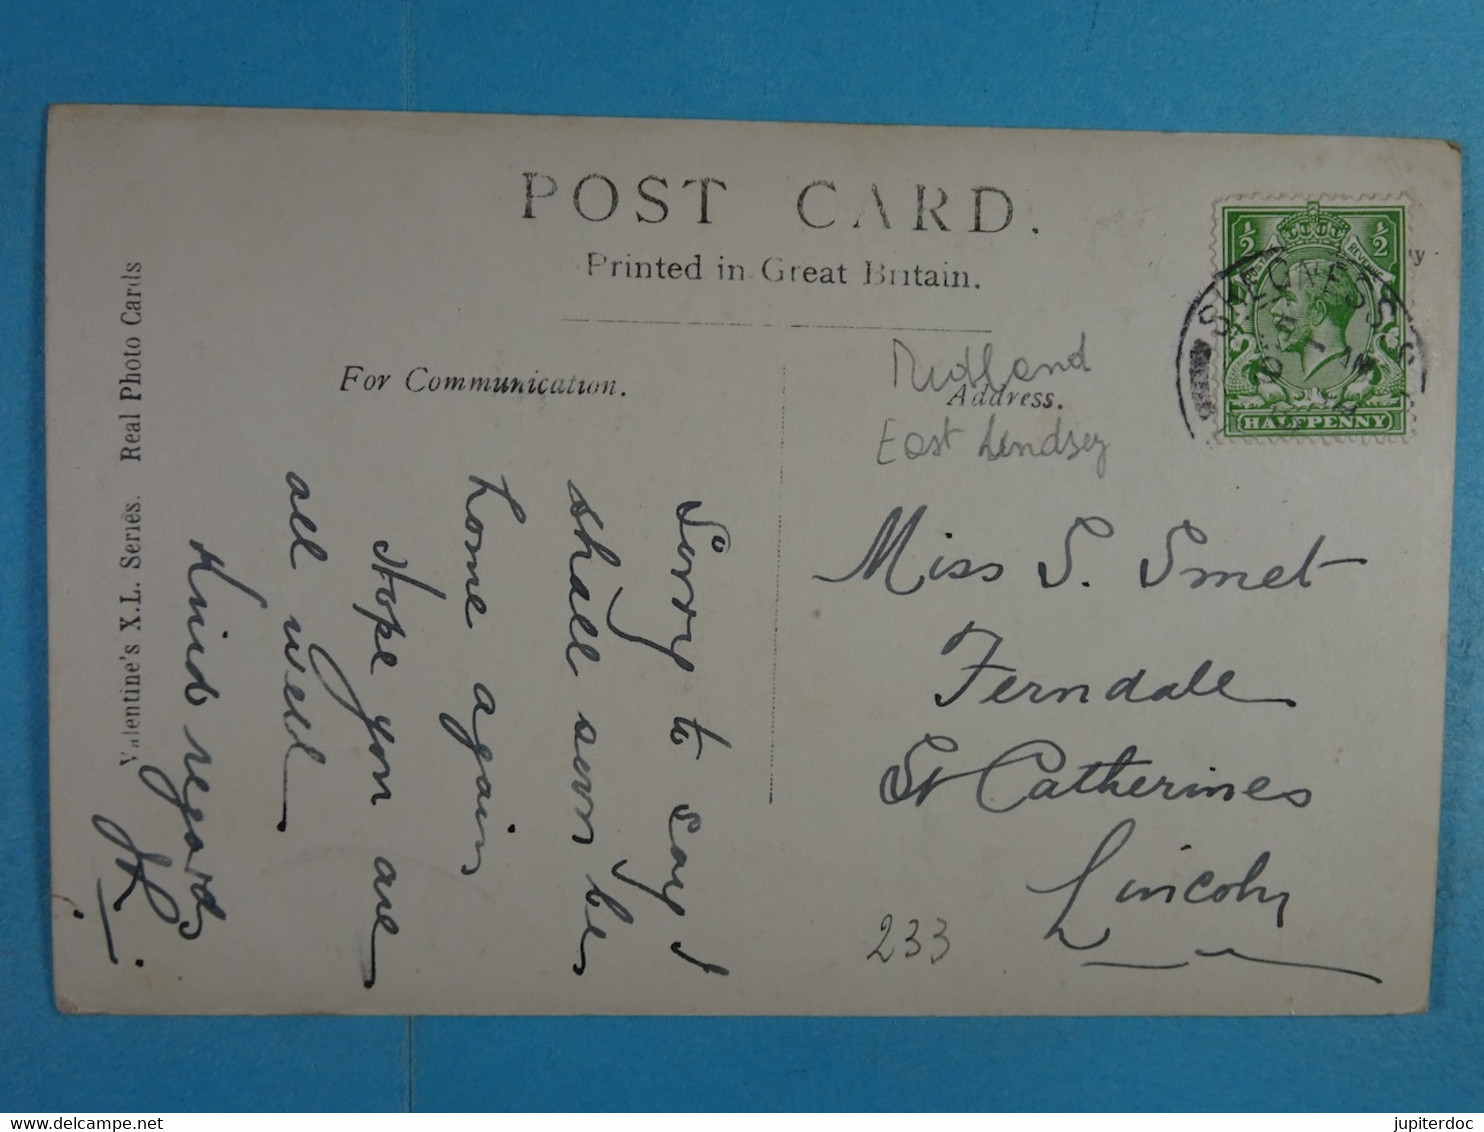 POST CARD.
Printed in Great Britain.
For Communication.
Address.
Valentine's X.L. Series. Real Photo Cards
Midland
East Lindsey
Miss S. Smet
Ferndale
St Catherines
Lincoln
233
Sorry to say I
shall soon be
home again
Hope you are
all well
Kind regards
½ ½
REVENUE
HALFPENNY
SKEGNESS
jupiterdoc
delcampe.net